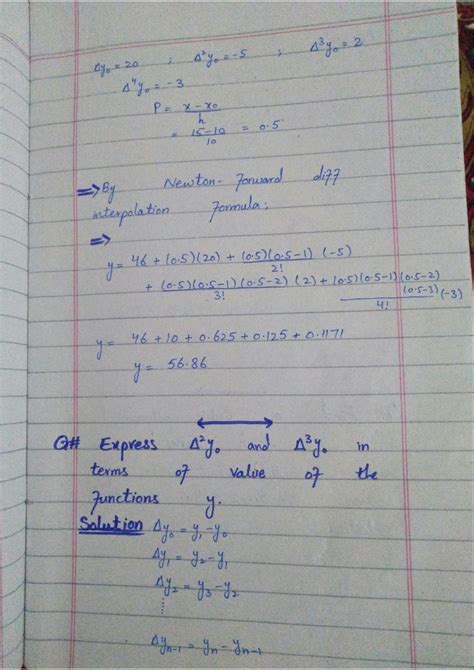 Δy₀ = 20 ; Δ²y₀ = -5 ; Δ³y₀ = 2
Δ⁴y₀ = -3
P = x - x₀ / h
= 15-10 / 10 = 0.5
⇒ By Newton- Forward diff
interpolation Formula;
⇒
y = 46 + (0.5)(20) + (0.5)(0.5-1) / 2! (-5)
+ (0.5)(0.5-1)(0.5-2) / 3! (2) + (0.5)(0.5-1)(0.5-2)(0.5-3) / 4! (-3)
y = 46 + 10 + 0.625 + 0.125 + 0.1171
y = 56.86
Q# Express Δ²y₀ and Δ³y₀ in
terms of value of the
Functions y.
Solution Δy₀ = y₁ - y₀
Δy₁ = y₂ - y₁
Δy₂ = y₃ - y₂
⋮
Δyn-1 = yn - yn-1